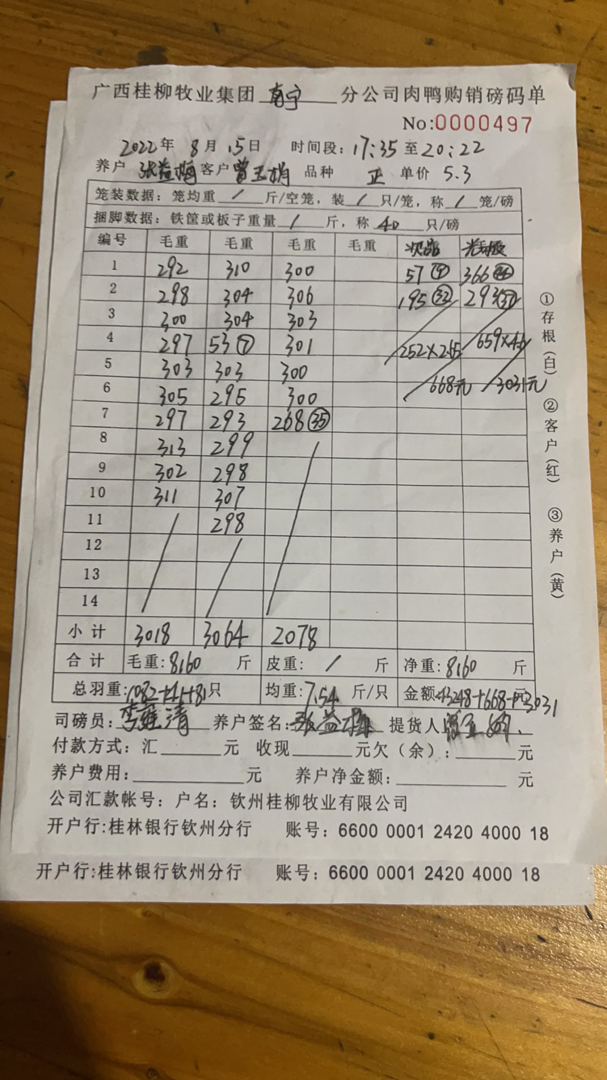 广西桂柳牧业集团 南宁 分公司肉鸭购销磅码单
No:0000497
2022年 8月 15日 时间段: 17:35 至 20:22
养户 张益梅 客户 品种 正 单价 5.3
笼装数据: 笼均重 / 斤/空笼, 装 / 只/笼, 称 / 笼/磅
捆脚数据: 铁筐或板子重量 / 斤, 称 40 只/磅
编号 毛重 毛重 毛重 毛重 次品
1 292 310 300 57 366
2 298 304 306 195 (32) 293 (37)
3 300 304 303
4 297 53 (7) 301 252×265 659×46
5 303 303 300
6 305 295 300 668元 3031元
7 297 293 268 (35)
8 313 299
9 302 298
10 311 307
11 298
12
13
14
小计 3018 3064 2078
合计 毛重: 8160 斤 皮重: / 斤 净重: 8160 斤
总羽重: 1082+41+81只 均重: 7.54 斤/只 金额: 43248+668 3031
司磅员: 养户签名: 张益梅 提货人
付款方式: 汇 元 收现 元欠(余): 元
养户费用: 元 养户净金额: 元
公司汇款帐号: 户名: 钦州桂柳牧业有限公司
开户行:桂林银行钦州分行 账号: 6600 0001 2420 4000 18
开户行:桂林银行钦州分行 账号: 6600 0001 2420 4000 18
①存根(白) ②客户(红) ③养户(黄)